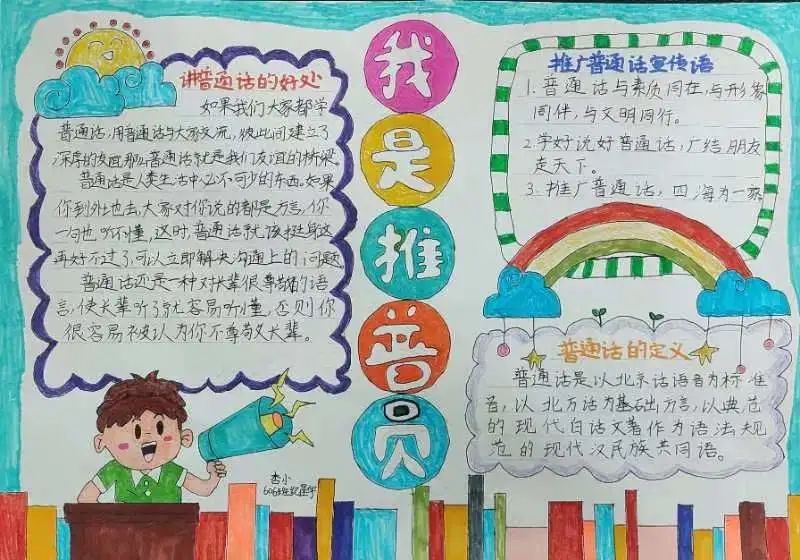 讲普通话的好处
如果我们大家都学
普通话,用普通话与大家交流,彼此间建立了
深厚的友谊,那么普通话就是我们友谊的桥梁。
普通话是人类生活中必不可少的东西。如果
你到外地去,大家对你说的都是方言,你
一句也听不懂,这时,普通话就该挺身这
再好不过了,可以立即解决沟通上的问题
普通话还是一种对长辈很尊敬的语
言,使长辈听了就容易听懂,否则你
很容易被认为你不尊敬长辈。
我
是
推
普
员
推广普通话宣传语
1.普通话与素质同在,与形象
同伴,与文明同行。
2.学好说好普通话,广结朋友
走天下。
3.推广普通话,四海为一家
普通话的定义
普通话是以北京话语音为标准
音,以北方话为基础方言,以典范
的现代白话文著作为语法规
范的现代汉民族共同语。